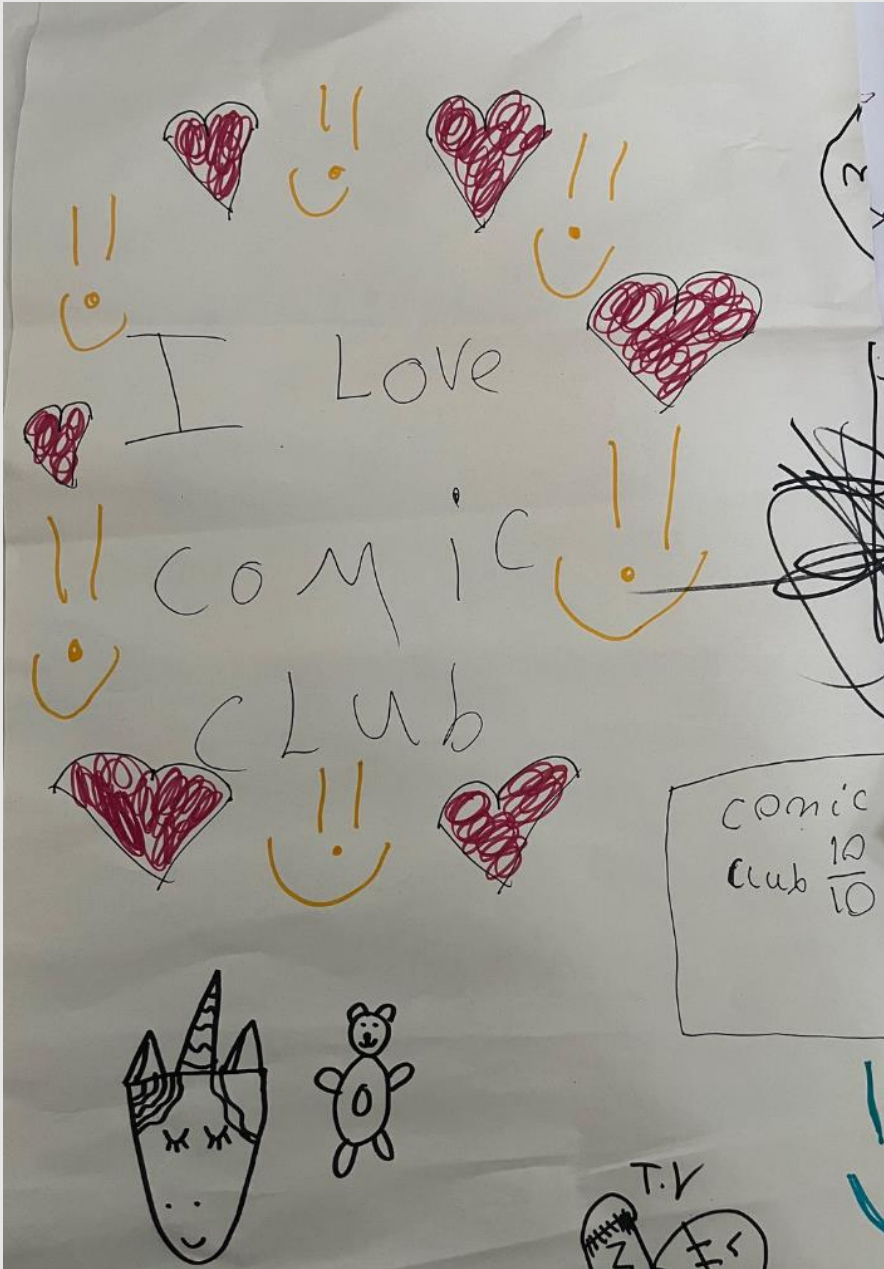 I Love
comic
cLub
comic
club 10/10
T.V